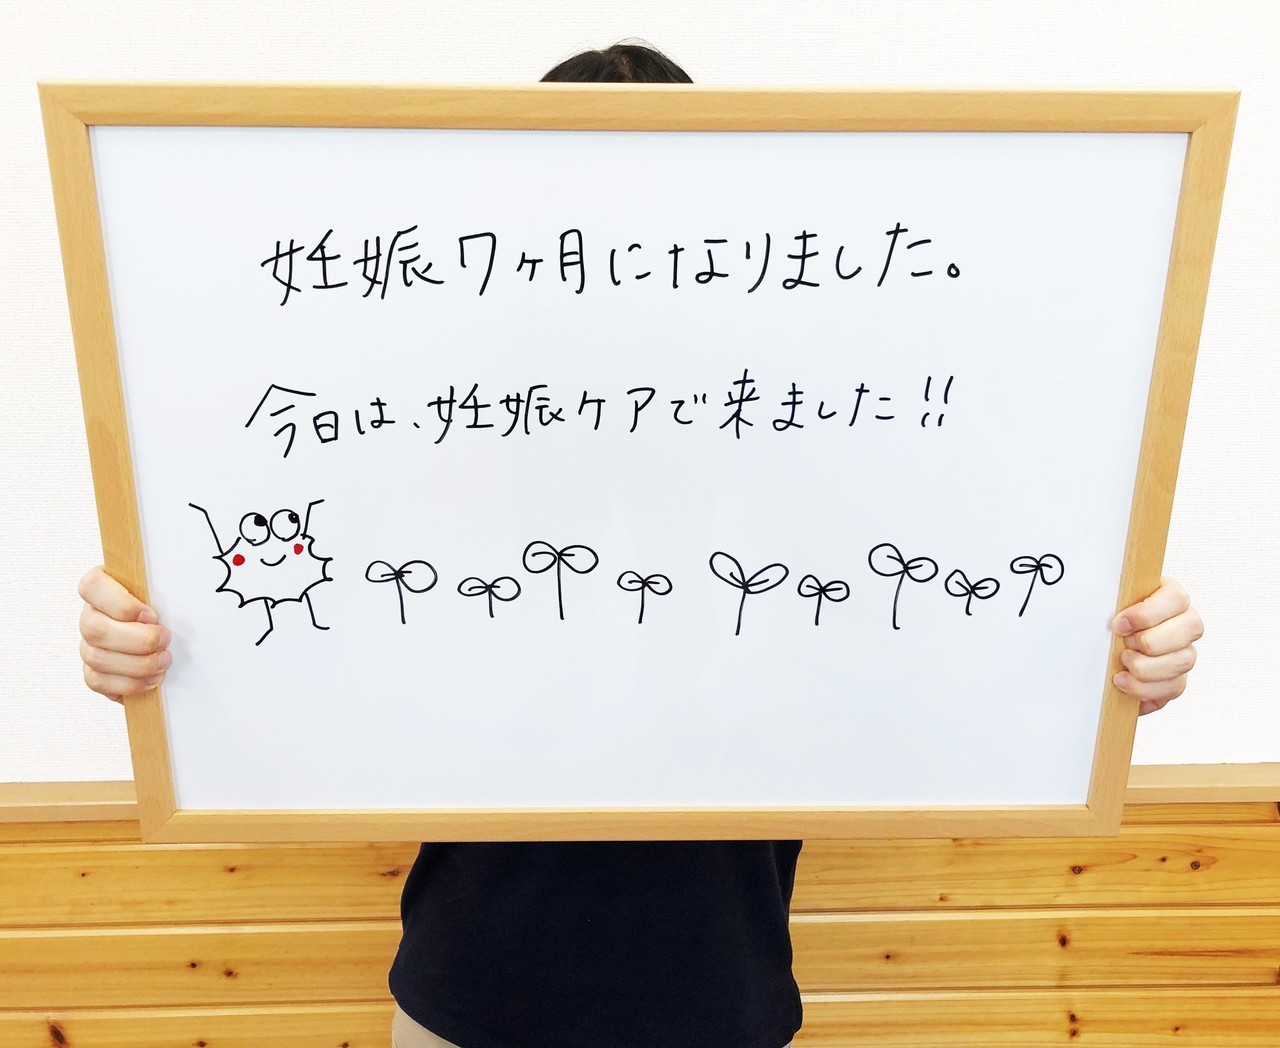 妊娠7ヶ月になりました。
今日は、妊娠ケアで来ました!!